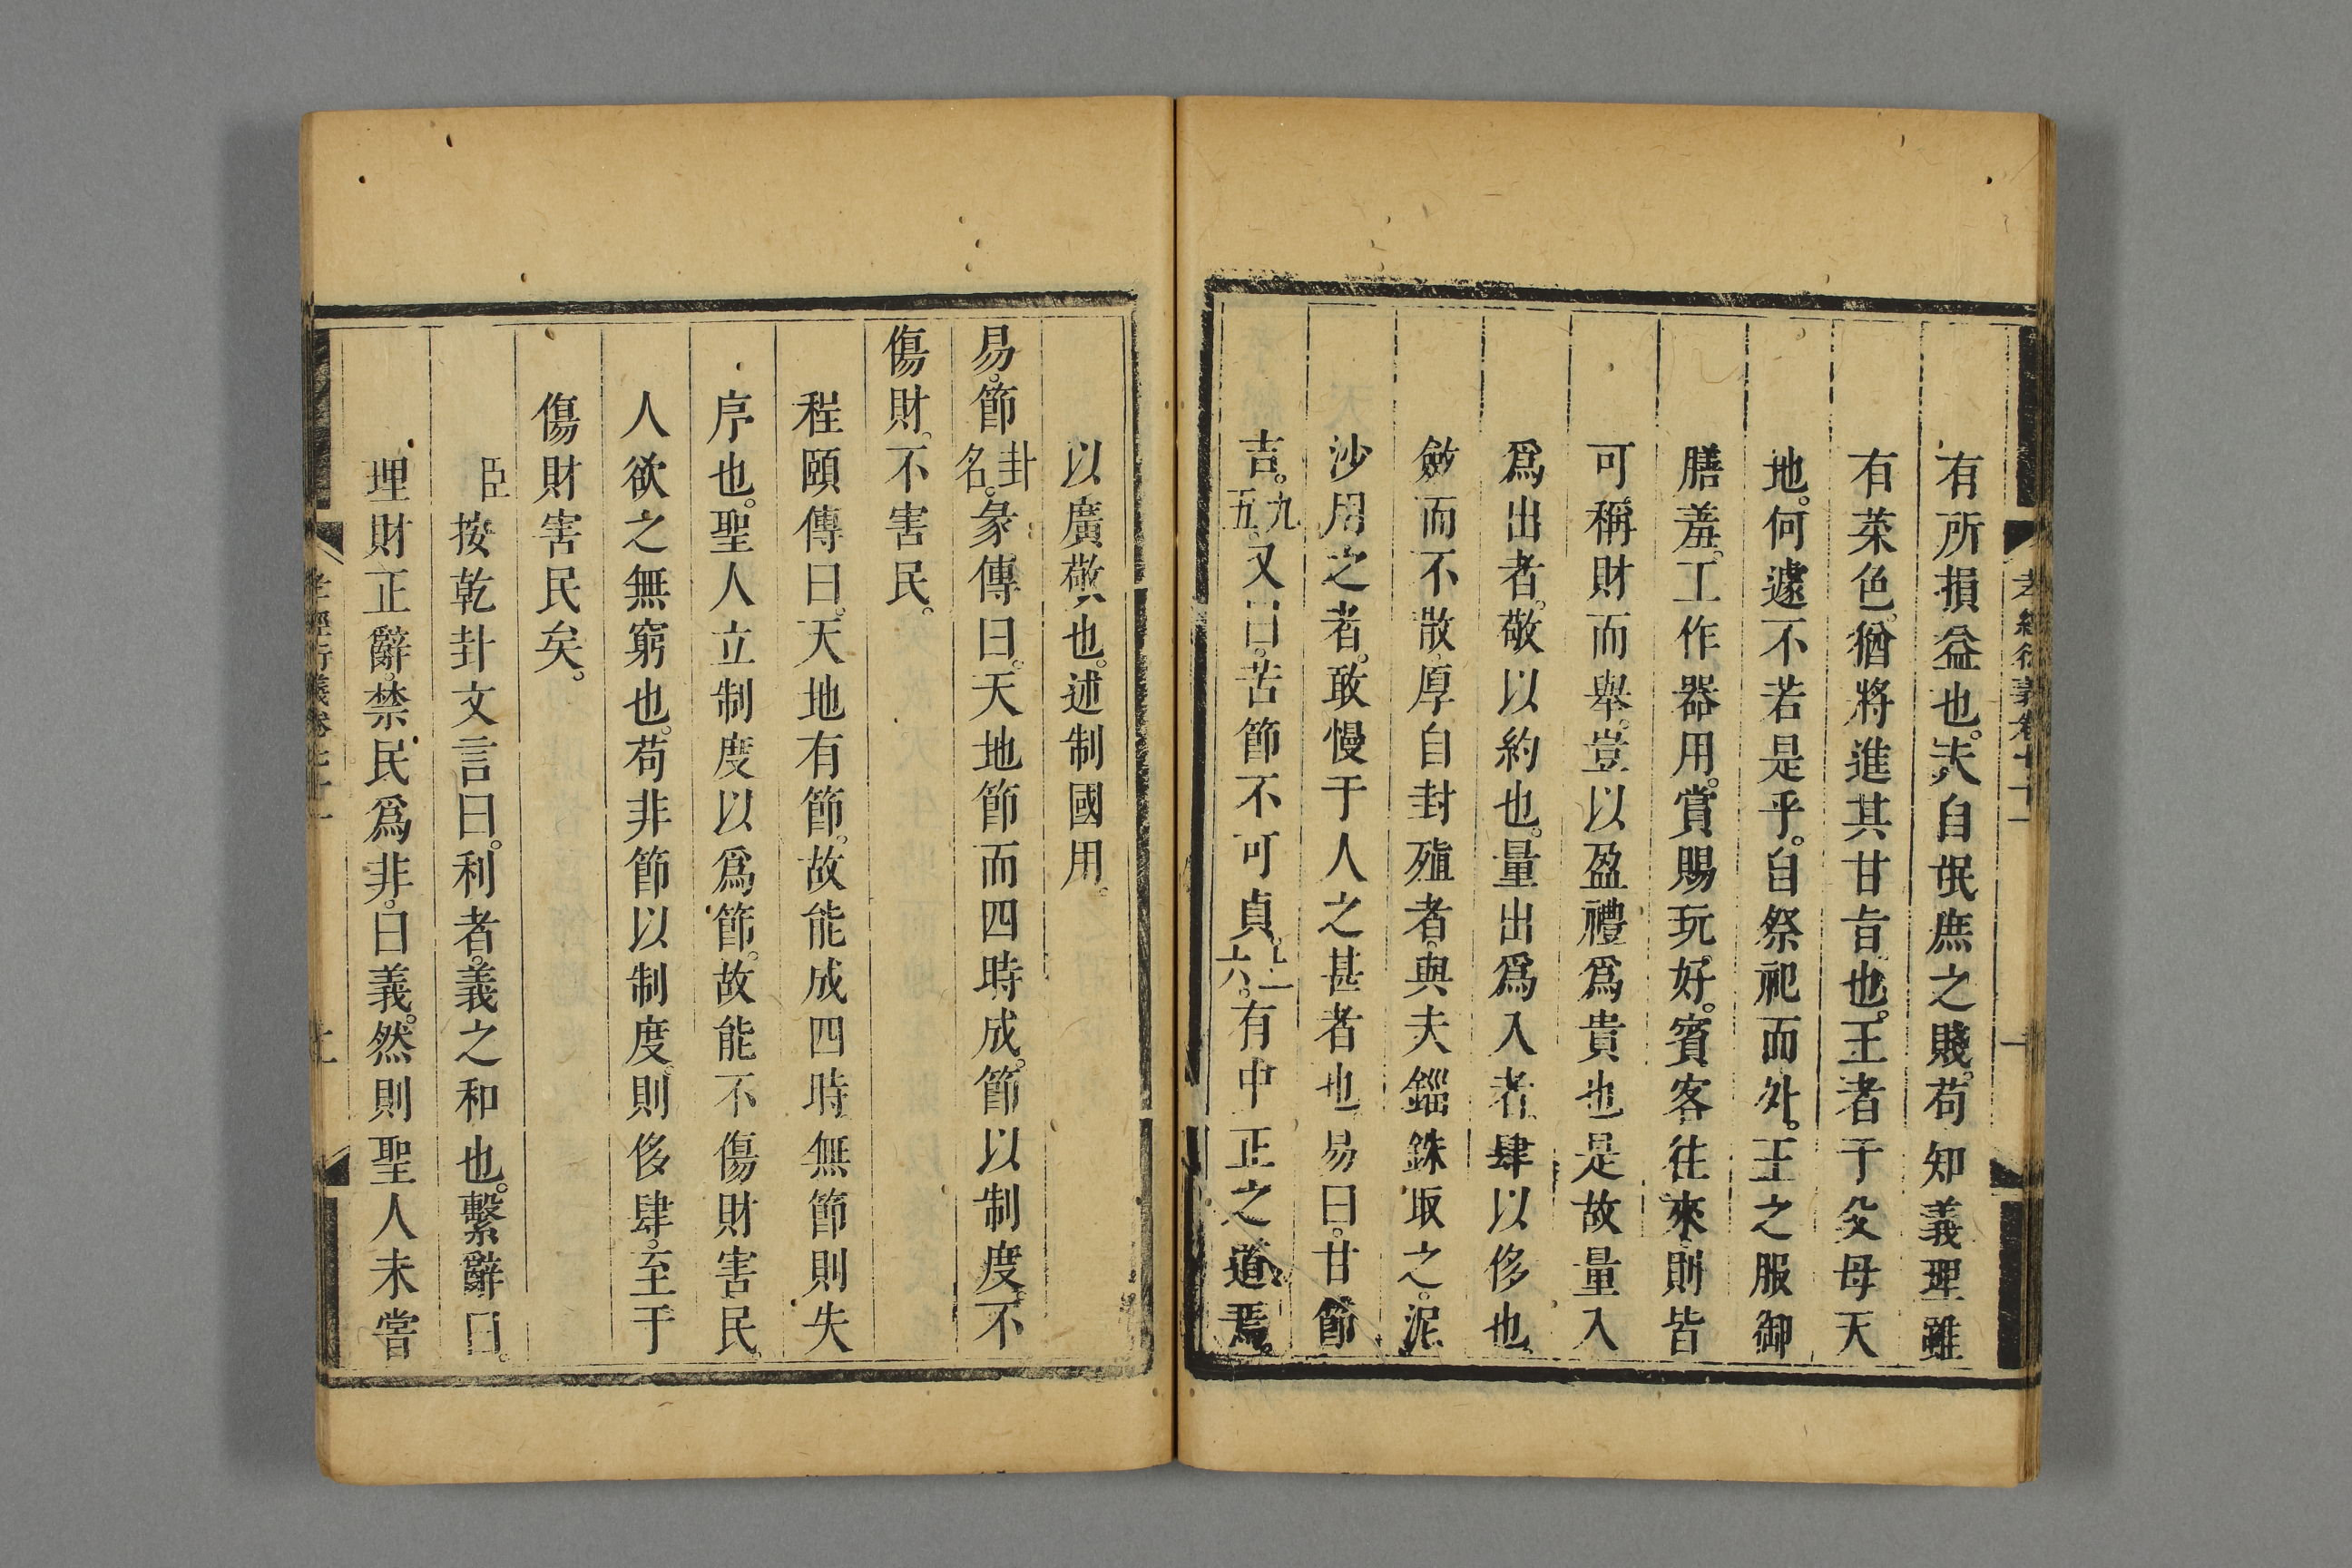 有所損益也。夫自氓庶之賤。苟知義理。雖
有菜色。猶將進其甘旨也。王者于父母天
地。何遽不若是乎。自祭祀而外。王之服御
膳羞。工作器用。賞賜玩好。賓客往來。則皆
可稱財而舉。豈以盈禮爲貴也。是故量入
爲出者。敬以約也。量出爲入者。肆以侈也。
斂而不散。厚自封殖者。與夫錙銖取之。泥
沙用之者。敢慢于人之甚者也。易曰。甘節
吉。九五。又曰。苦節不可貞。上六。有中正之道焉。
以廣敬也。述制國用。
易。節卦名。彖傳曰。天地節而四時成。節以制度。不
傷財。不害民。
程頤傳曰。天地有節。故能成四時。無節則失
序也。聖人立制度以爲節。故能不傷財害民。
人欲之無窮也。苟非節以制度。則侈肆。至于
傷財害民矣。
臣按乾卦文言曰。利者。義之和也。繫辭曰。
理財正辭。禁民爲非。曰義。然則聖人未嘗